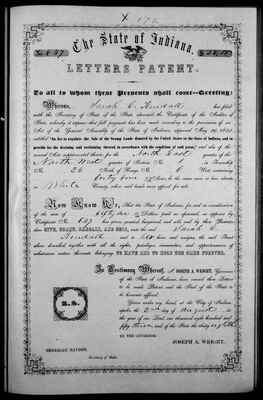 The State of Indiana.
LETTERS PATENT.
To all to whom these Presents shall come—Greeting:
Whereas, Sarah C. Kendall has filed
with the Secretary of State of the State aforesaid, the Certificate of the Auditor of
State, whereby it appears that full payment has been made according to the provisions of an
Act of the General Assembly of the State of Indiana, approved May 29, 1852,
entitled "An Act to regulate the Sale of the Swamp Lands donated by the United States to the State of Indiana, and to
provide for the draining and reclaiming thereof in accordance with the condition of said grant," and also of the
several Acts supplemental thereto, for the North East quarter of the
North West quarter of Section No. in Township
No. 26 North of Range No. 6 West containing
of an Acre, be the same more or less, situate
in White County, when said lands were offered for sale.
Now Know Ye, That the State of Indiana, for and in consideration
of the sum of Dollars, paid as aforesaid, as appears by
Certificate No. has given, granted, bargained and sold, and by these Presents
DOTH GIVE, GRANT, BARGAIN, AND SELL, unto the said Sarah C.
Kendall and her heirs and assigns, the said tract
above described, together with all the rights, privileges, immunities, and appurtenances of
whatsoever nature thereunto belonging, TO HAVE AND TO HOLD THE SAME FOREVER.
In Testimony Whereof, I, JOSEPH A. WRIGHT, Governor
of the State of Indiana, have caused these Letters
to be made Patent, and the Seal of the State to
be hereunto affixed.
Given under my hand, at the City of Indianapolis,
the 2nd day of August in
the year of our Lord, one thousand eight hundred and
fifty and of the State the thirty eighth
BY THE GOVERNOR:
JOSEPH A. WRIGHT.
NEHEMIAH HAYDEN,
Secretary of State.